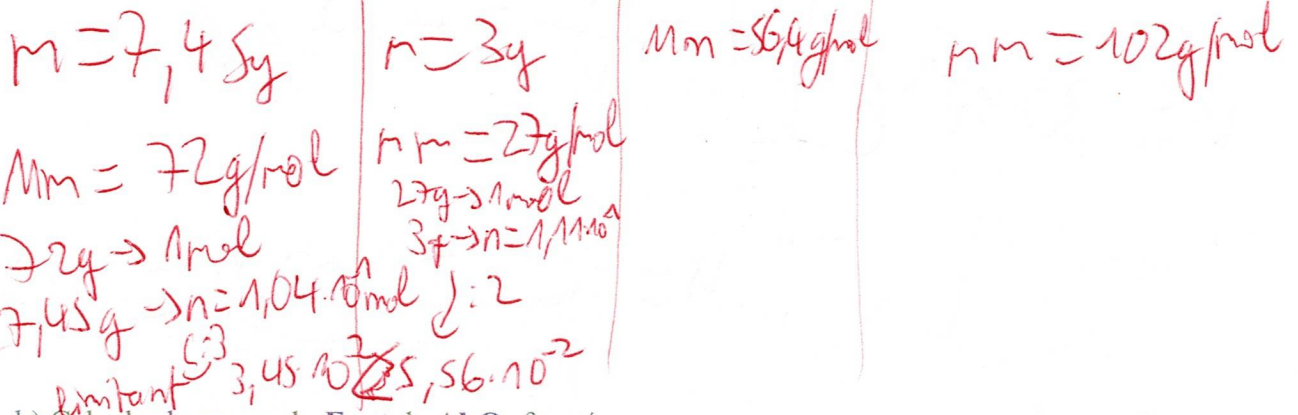 m=7,45g
Mm = 72g/mol
72g→1mol
7,45g→n=1,04.10^-1mol
:3
limitant 3,45.10^-2
m=3g
mm=27g/mol
27g→1mol
3g→n=1,11.10^-1
:2
5,56.10^-2
Mm=56,4g/mol
mm=102g/mol